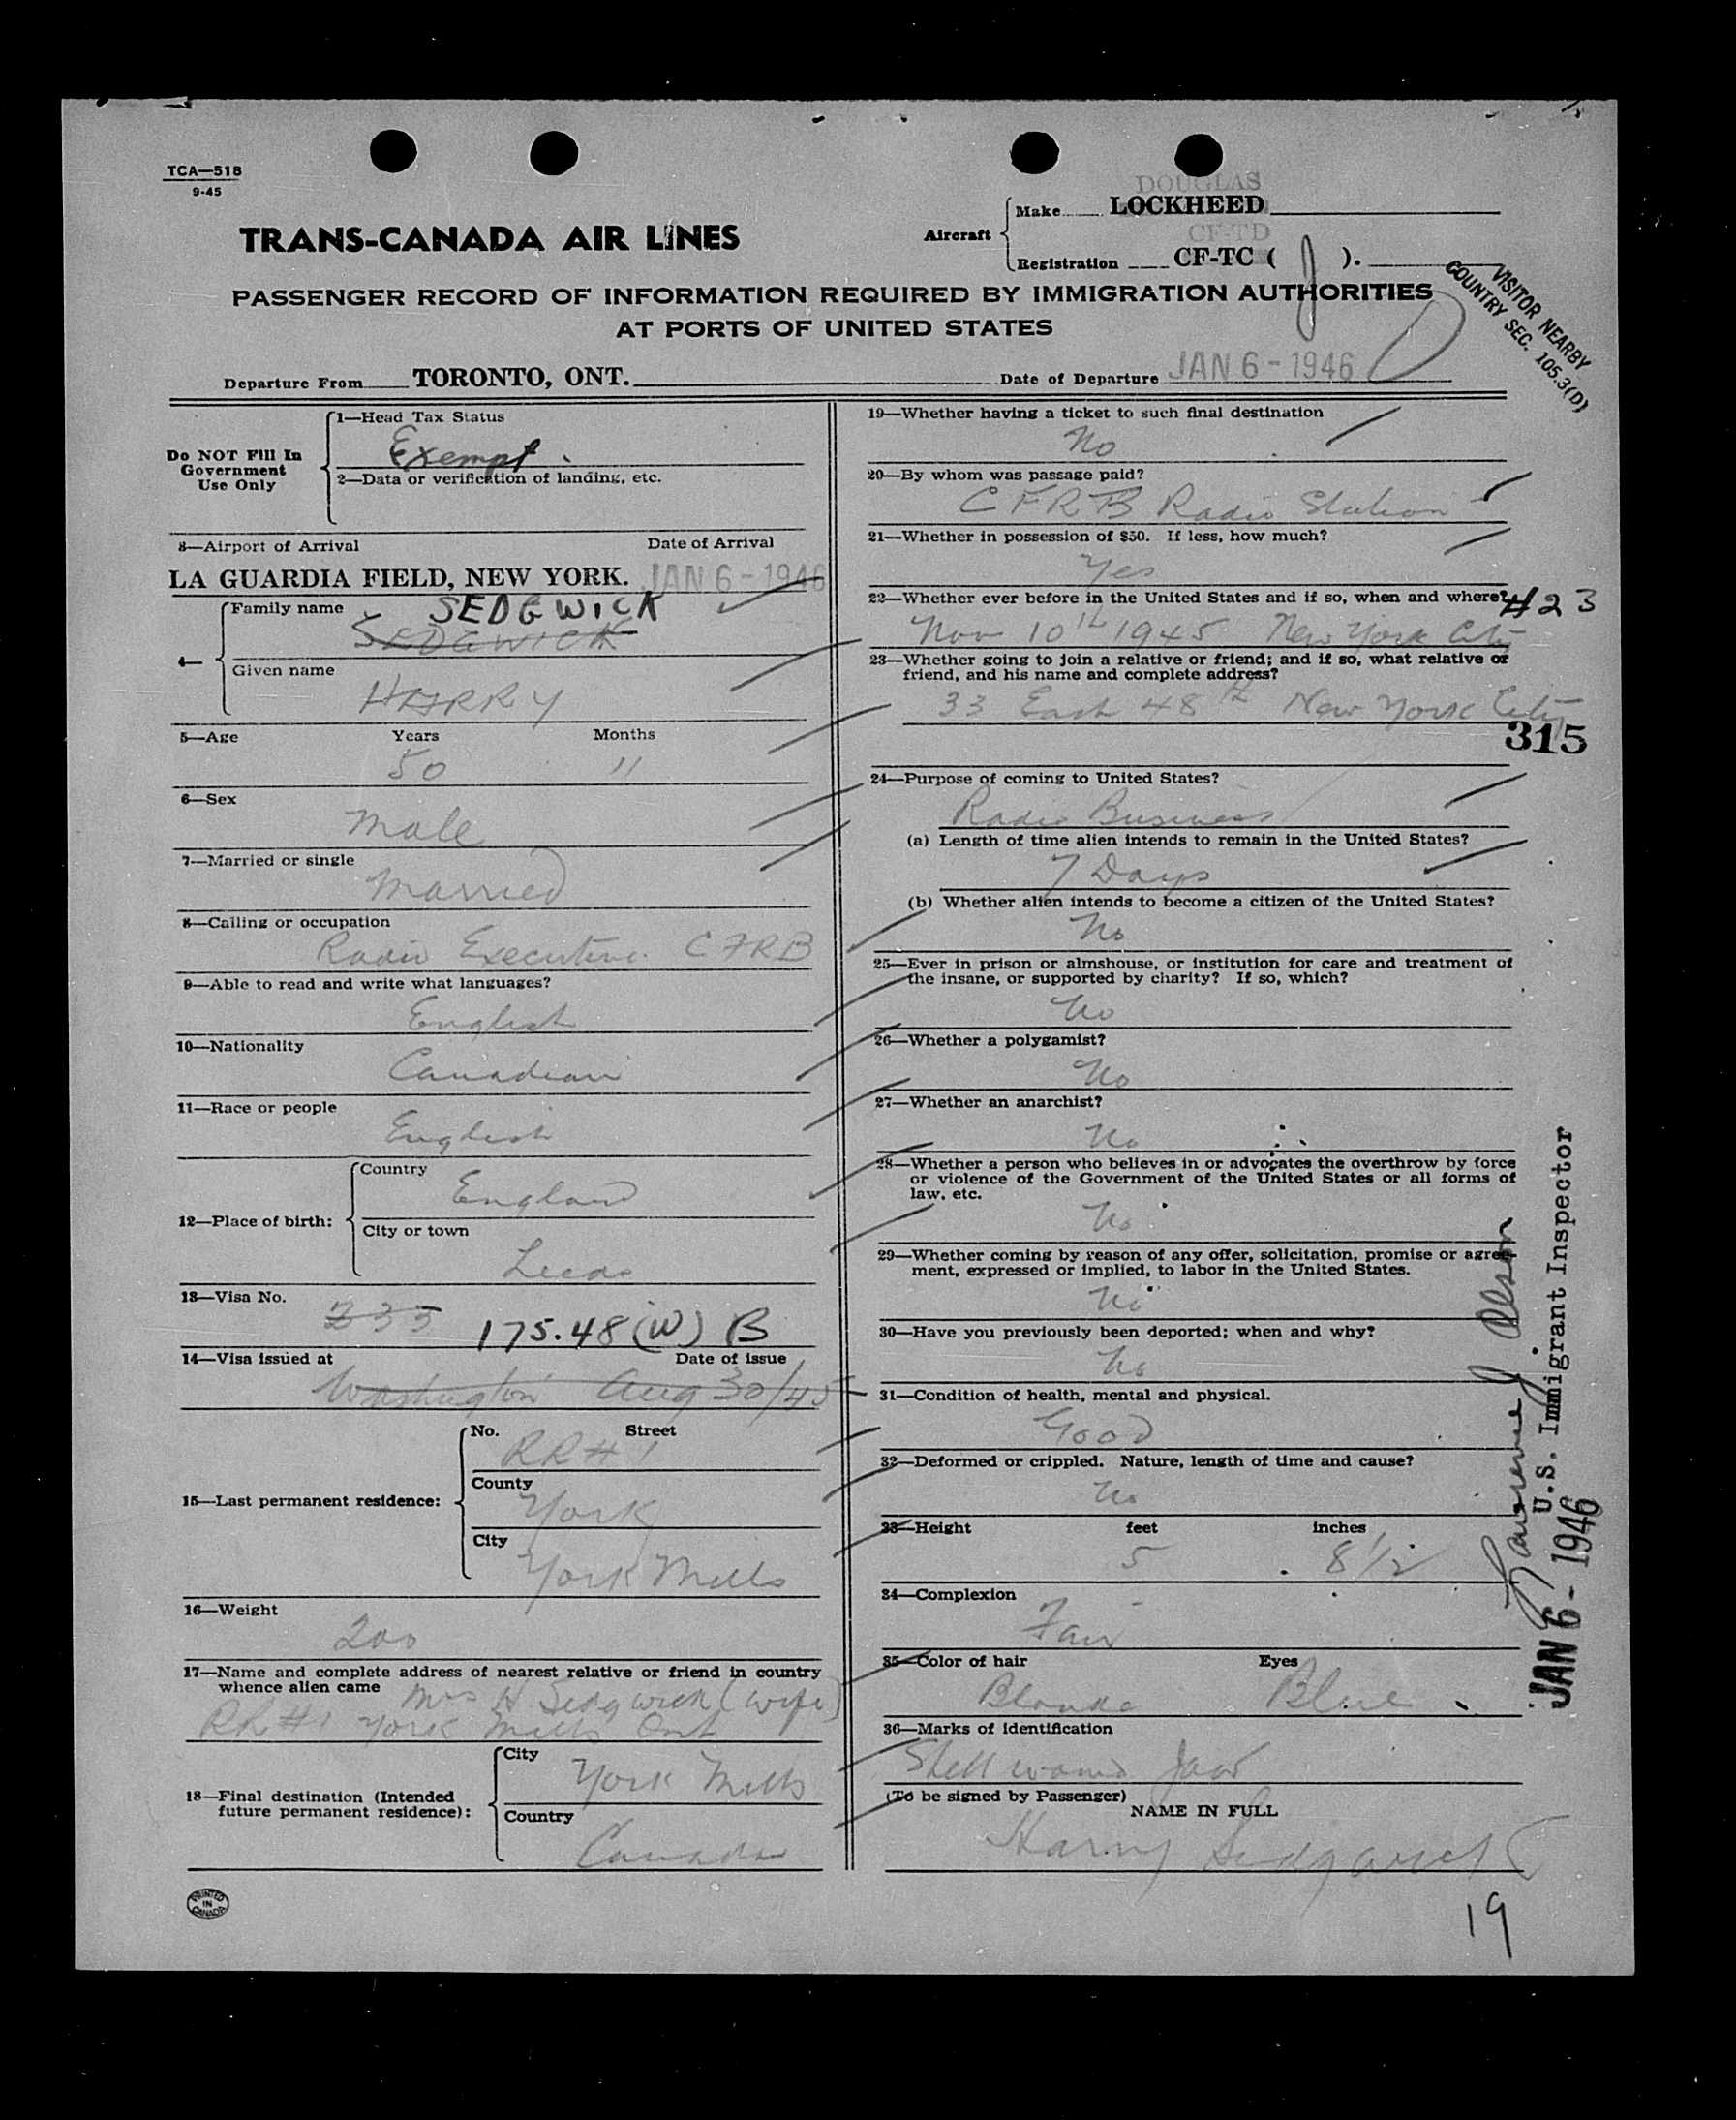 TCA—518
9-45
TRANS-CANADA AIR LINES
Aircraft
DOUGLAS
Make LOCKHEED
CF-TD
Registration CF-TC ( J ).
PASSENGER RECORD OF INFORMATION REQUIRED BY IMMIGRATION AUTHORITIES
AT PORTS OF UNITED STATES
VISITOR NEARBY
COUNTRY SEC. 105.3(D)
Departure From TORONTO, ONT. Date of Departure JAN 6 - 1946
Do NOT Fill In
Government
Use Only
1—Head Tax Status
Exempt.
2—Data or verification of landing, etc.
3—Airport of Arrival Date of Arrival
LA GUARDIA FIELD, NEW YORK. JAN 6 - 1946
4—
Family name SEDGWICK
SEDGWICK
Given name
HARRY
5—Age Years Months
50 11
6—Sex
Male
7—Married or single
Married
8—Calling or occupation
Radio Executive. CFRB
9—Able to read and write what languages?
English
10—Nationality
Canadian
11—Race or people
English
12—Place of birth:
Country
England
City or town
Leeds
13—Visa No.
335 175.48 (W) B
14—Visa issued at Date of issue
Washington Aug 30/45
15—Last permanent residence:
No. Street
RR # 1
County
York
City
York Mills
16—Weight
200
17—Name and complete address of nearest relative or friend in country
whence alien came Mrs H Sedgwick (wife)
RR #1 York Mills Ont
18—Final destination (Intended
future permanent residence):
City
York Mills
Country
Canada
PRINTED
IN
CANADA
19—Whether having a ticket to such final destination
No
20—By whom was passage paid?
CFRB Radio Station
21—Whether in possession of $50. If less, how much?
Yes
22—Whether ever before in the United States and if so, when and where? #23
Nov 10th 1945 New York City
23—Whether going to join a relative or friend; and if so, what relative or
friend, and his name and complete address?
33 East 48th New York City
315
24—Purpose of coming to United States?
Radio Business
(a) Length of time alien intends to remain in the United States?
7 Days
(b) Whether alien intends to become a citizen of the United States?
No
25—Ever in prison or almshouse, or institution for care and treatment of
the insane, or supported by charity? If so, which?
No
26—Whether a polygamist?
No
27—Whether an anarchist?
No
28—Whether a person who believes in or advocates the overthrow by force
or violence of the Government of the United States or all forms of
law, etc.
No
29—Whether coming by reason of any offer, solicitation, promise or agree-
ment, expressed or implied, to labor in the United States.
No
30—Have you previously been deported; when and why?
No
31—Condition of health, mental and physical.
Good
32—Deformed or crippled. Nature, length of time and cause?
No
33—Height feet inches
5 8 1/2
34—Complexion
Fair
35—Color of hair Eyes
Blonde Blue
36—Marks of identification
Shell wound Jaw
(To be signed by Passenger)
NAME IN FULL
Harry Sedgwick
19
Lawrence J Olson
U.S. Immigrant Inspector
JAN 6 - 1946